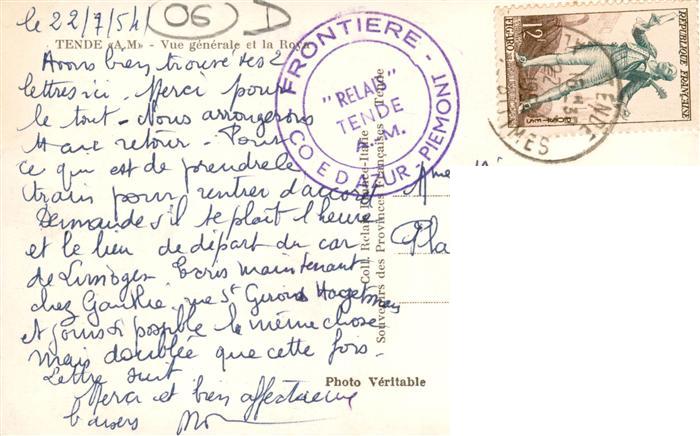 le 22/7/54
06 D
TENDE (A.M) - Vue générale et la Roya
Avons bien trouvé tes 2
lettres ici. Merci pour
le tout. Nous arrangerons
au retour. Pour
ce qui est de prendre le
train pour rentrer d'accord
Demande s'il te plaît l'heure
et le lieu de départ du car
de Limoges. Ecris maintenant
chez Gauthie, rue St Girons Hagetmau
et joins si possible la même chose
mais doublée que cette fois.
Lettre suit
Merci et bien affectueux
baisers
FRONTIERE - PIEMONT
COE D AZUR
"RELAIS"
TENDE
A. M.
Coll. Relais France-Italie
Souvenirs des Provinces Françaises - Tende
Photo Véritable
REPUBLIQUE FRANÇAISE
12F
FIGARO
TENDE
MARITIMES
Mme
Pla